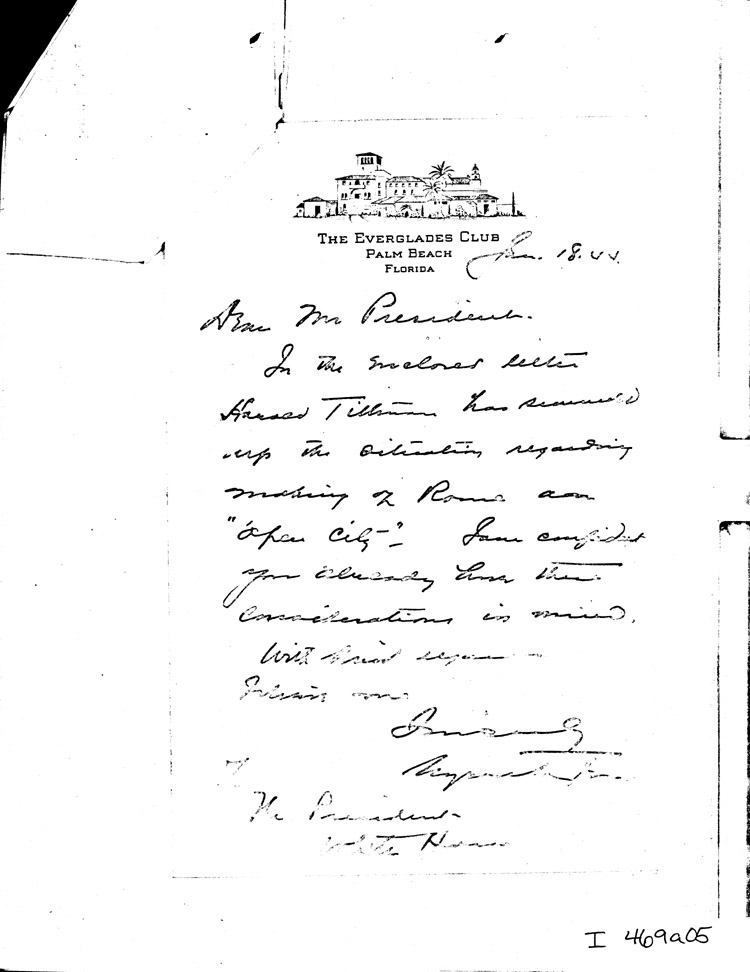 THE EVERGLADES CLUB
PALM BEACH
FLORIDA
Jan. 18. 44.
Dear Mr President.
In the enclosed letter
Harold Tittman has summed
up the situation regarding
making of Rome an
"open city". I am confident
you already have these
considerations in mind.
With kind
me
Sincerely
The President
White House
I 469a05